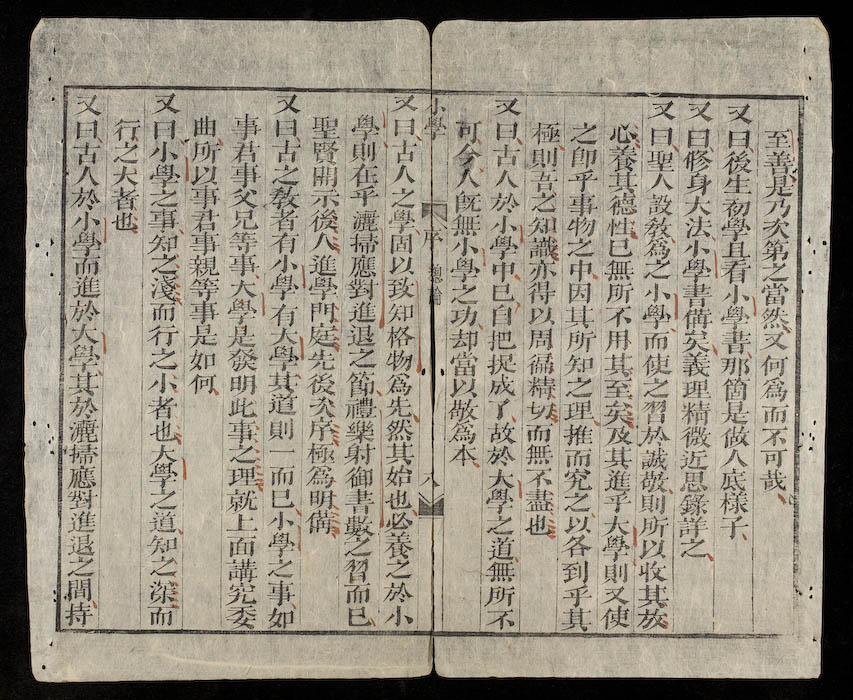 至善是乃次第之當然又何為而不可哉
又曰後生初學且看小學書那箇是做人底樣子
又曰修身大法小學書備矣義理精微近思錄詳之
又曰聖人設教為之小學而使之習於誠敬則所以收其放
心養其德性已無所不用其至矣及其進乎大學則又使
之即乎事物之中因其所知之理推而究之以各到乎其
極則吾之知識亦得以周徧精切而無不盡也
又曰古人於小學中已自把捉成了故於大學之道無所不
可今人既無小學之功却當以敬為本
小學 序 總論 八
又曰古人之學固以致知格物為先然其始也必養之於小
學則在乎灑掃應對進退之節禮樂射御書數之習而已
聖賢開示後人進學門庭先後次序極為明備
又曰古之教者有小學有大學其道則一而已小學之事如
事君事父兄等事大學是發明此事之理就上面講究委
曲所以事君事親等事是如何
又曰小學之事知之淺而行之小者也大學之道知之深而
行之大者也
又曰古人於小學而進於大學其於灑掃應對進退之間持